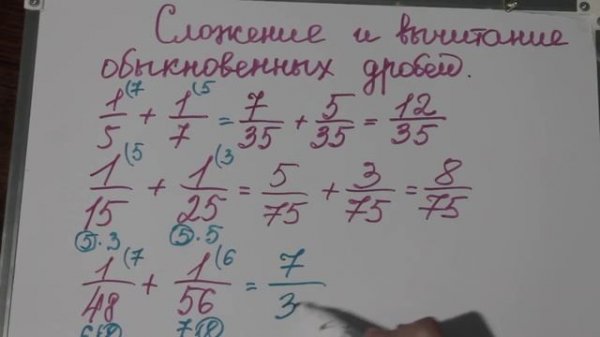 Сложение и вычитание
обыкновенных дробей.
1/5 (7 + 1/7 (5 = 7/35 + 5/35 = 12/35
1/15 (5 + 1/25 (3 = 5/75 + 3/75 = 8/75
5·3 5·5
1/48 (7 + 1/56 (6 = 7/3
6·8 7·8